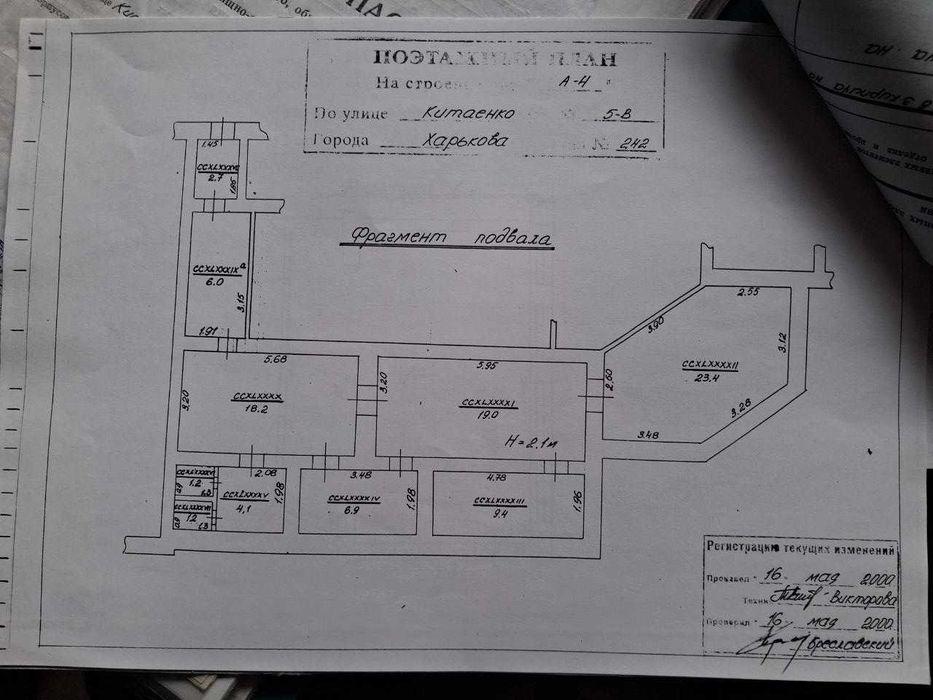 ПОЭТАЖНЫЙ ПЛАН
На строе А-4
По улице Китаенко 5-В
Города Харькова № 242
Фрагмент подвала
1.45
2.7
1.85
CCXLXXXIXа
6.0
3.15
1.91
5.68
3.20
CCXLXXXX
18.2
3.20
5.95
CCXLXXXXI
19.0
H=2.1м
2.60
3.90
2.55
3.12
CCXLXXXXII
23.4
3.28
3.48
2.08
CCXLXXXXV
4,1
1.98
1.2
1.3
0.9
CCXLXXXXVII
1.2
1.3
0.9
3.48
CCXLXXXXIV
6.9
1.98
4.78
CCXLXXXXIII
9.4
1.96
Регистрация текущих изменений
Произвел "16" мая 2000
Техник Викторова
Проверил "16" мая 2000
Бреславский